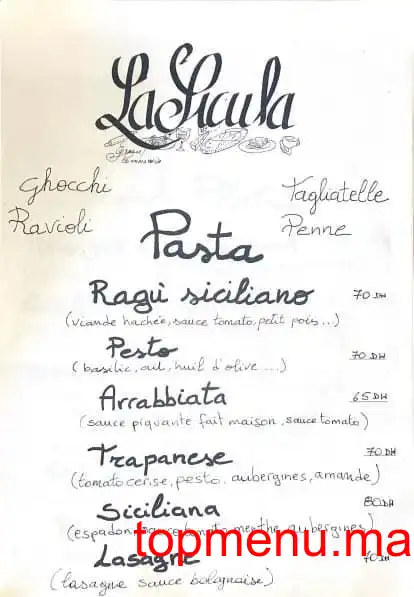 La Sicula
Ghocchi
Tagliatelle
Ravioli
Penne
Pasta
Ragù siciliano 70 DH
(viande hachée, sauce tomato, petit pois...)
Pesto 70 DH
(basilic, ail, huil d'olive ...)
Arrabbiata 65 DH
(sauce piquante fait maison, sauce tomato)
Trapanese 70 DH
(tomato cerise, pesto, aubergines, amande)
Siciliana 80 DH
(espadon, sauce tomato, menthe, aubergines)
Lasagne 70 DH
(lasagne sauce bolognaise)
topmenu.ma